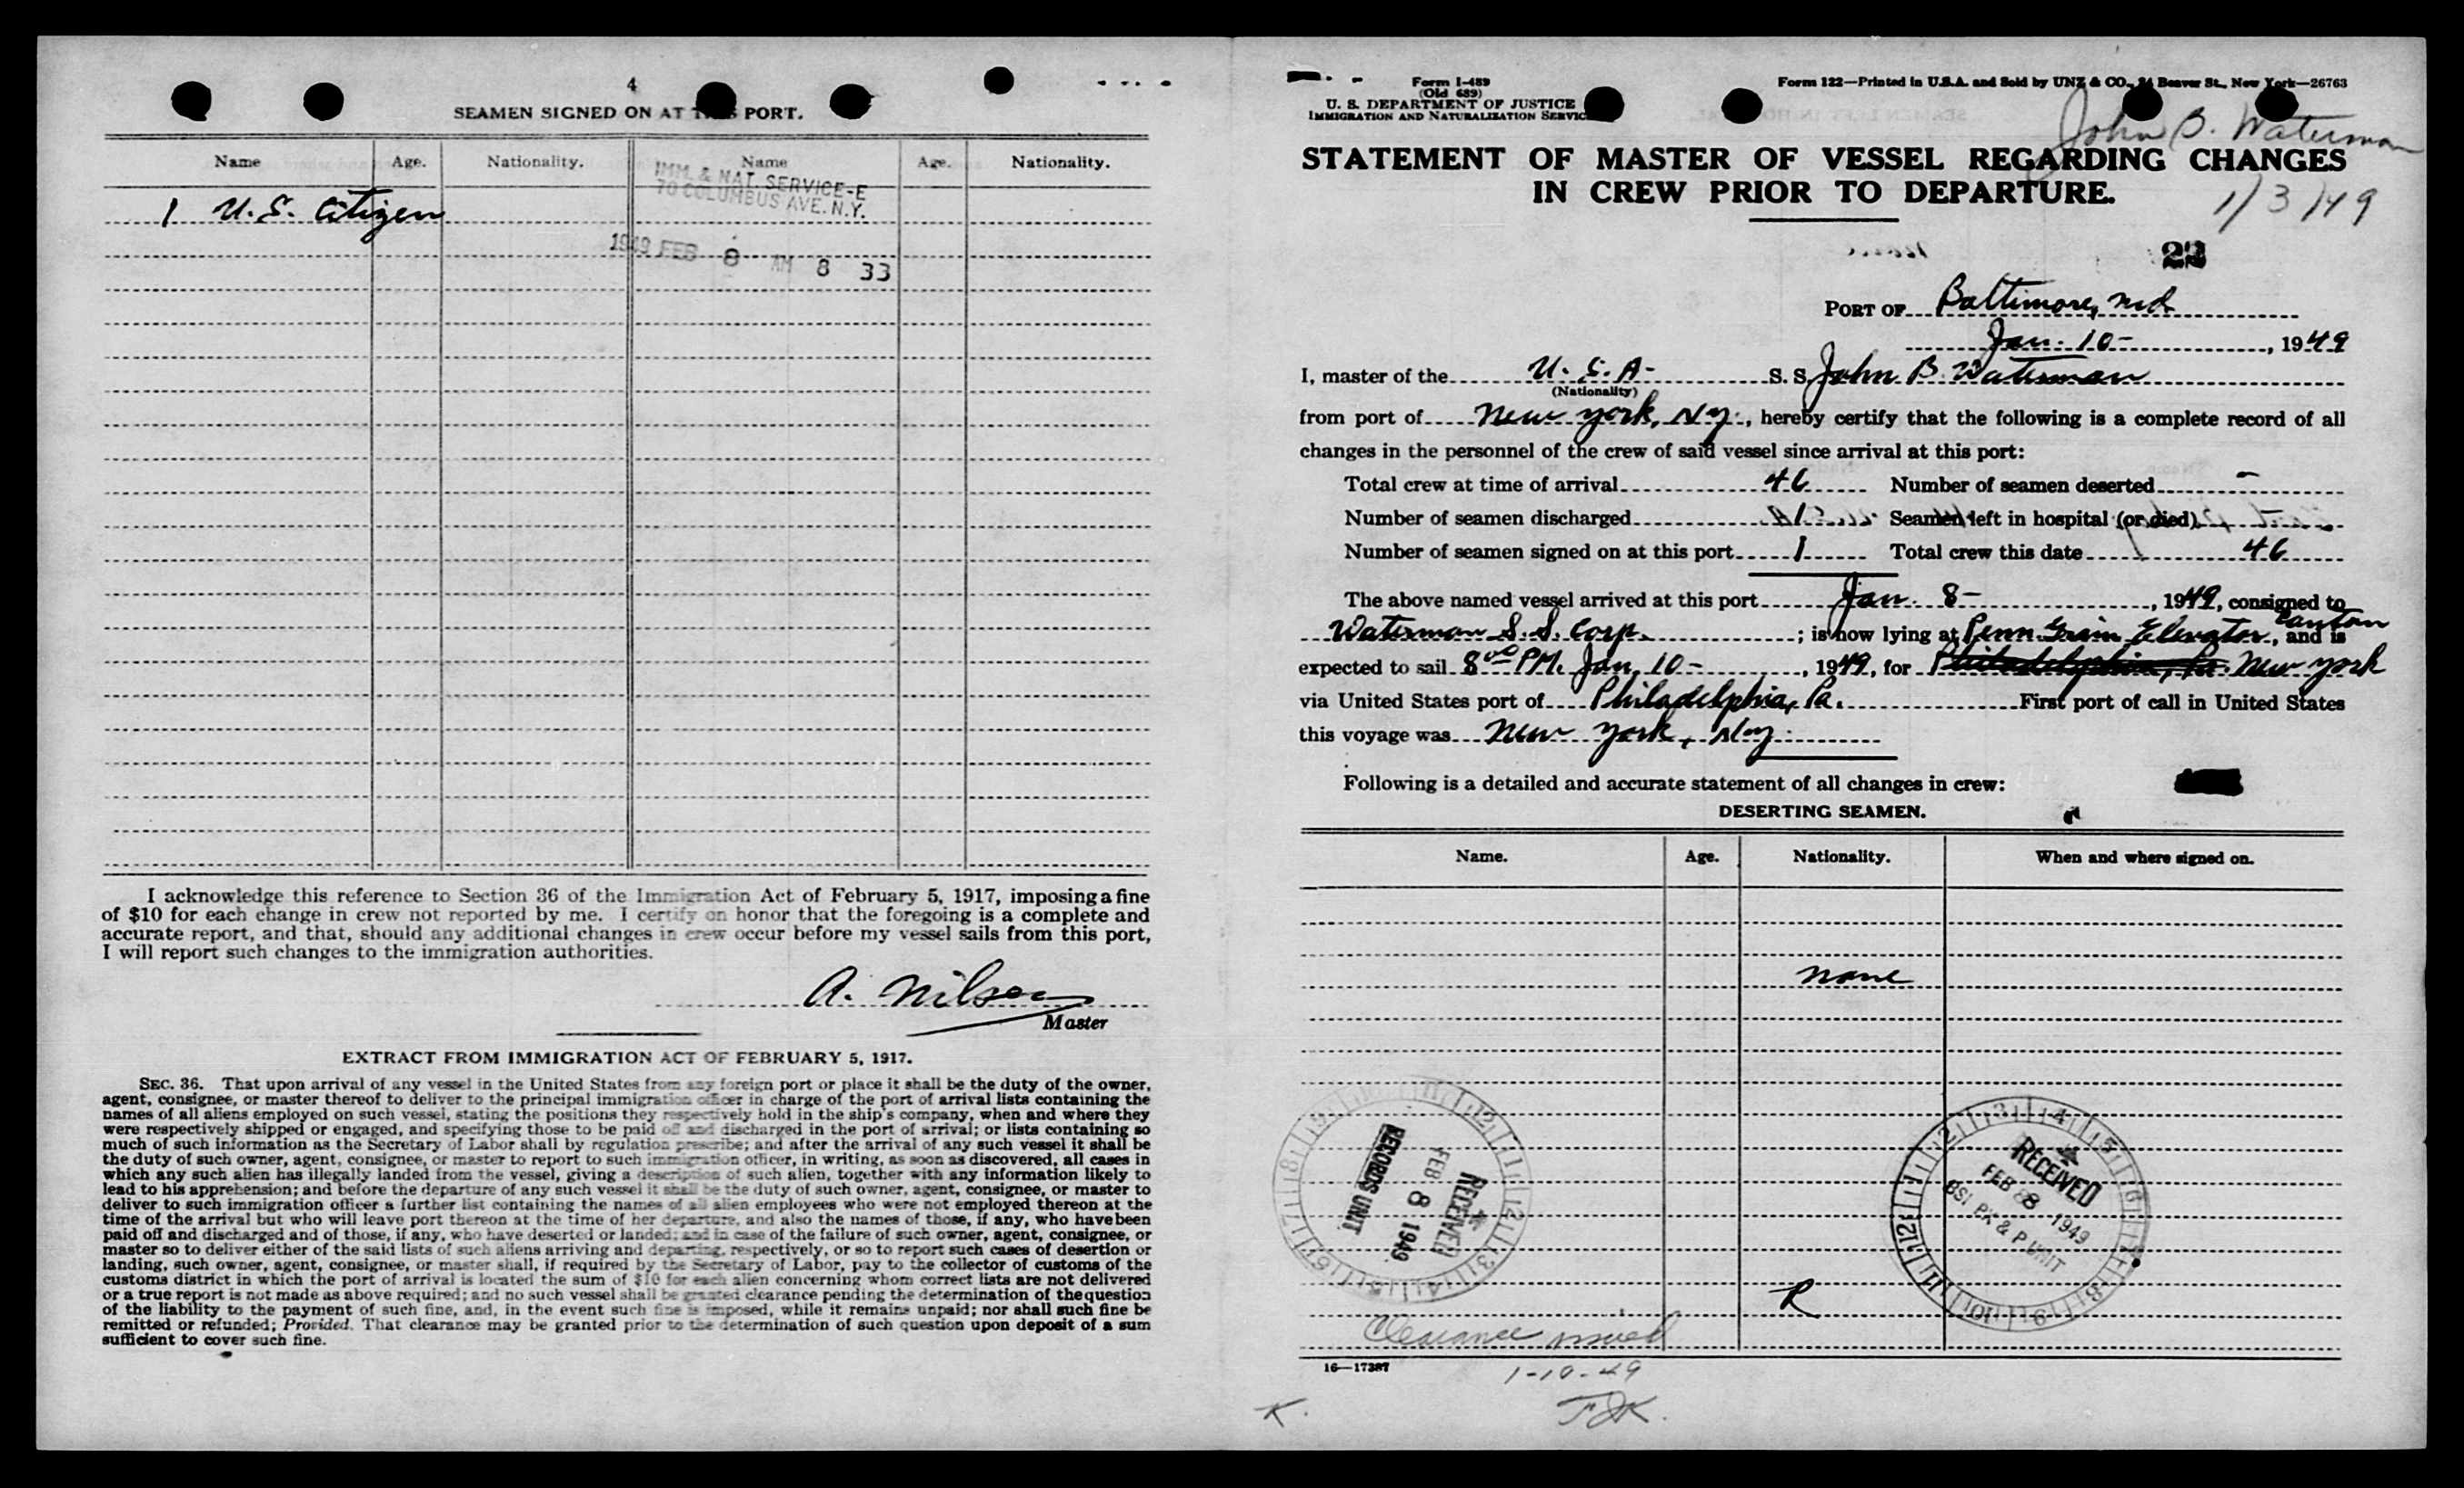 4
SEAMEN SIGNED ON AT THIS PORT.
Name Age. Nationality. Name Age. Nationality.
IMM. & NAT. SERVICE-E
70 COLUMBUS AVE. N.Y.
1 U.S. Citizen
1949 FEB 8 AM 8 33
I acknowledge this reference to Section 36 of the Immigration Act of February 5, 1917, imposing a fine
of $10 for each change in crew not reported by me. I certify on honor that the foregoing is a complete and
accurate report, and that, should any additional changes in crew occur before my vessel sails from this port,
I will report such changes to the immigration authorities.
A. Nilsen
Master
EXTRACT FROM IMMIGRATION ACT OF FEBRUARY 5, 1917.
SEC. 36. That upon arrival of any vessel in the United States from any foreign port or place it shall be the duty of the owner,
agent, consignee, or master thereof to deliver to the principal immigration officer in charge of the port of arrival lists containing the
names of all aliens employed on such vessel, stating the positions they respectively hold in the ship's company, when and where they
were respectively shipped or engaged, and specifying those to be paid off and discharged in the port of arrival; or lists containing so
much of such information as the Secretary of Labor shall by regulation prescribe; and after the arrival of any such vessel it shall be
the duty of such owner, agent, consignee, or master to report to such immigration officer, in writing, as soon as discovered, all cases in
which any such alien has illegally landed from the vessel, giving a description of such alien, together with any information likely to
lead to his apprehension; and before the departure of any such vessel it shall be the duty of such owner, agent, consignee, or master to
deliver to such immigration officer a further list containing the names of all alien employees who were not employed thereon at the
time of the arrival but who will leave port thereon at the time of her departure, and also the names of those, if any, who have been
paid off and discharged and of those, if any, who have deserted or landed; and in case of the failure of such owner, agent, consignee, or
master so to deliver either of the said lists of such aliens arriving and departing, respectively, or so to report such cases of desertion or
landing, such owner, agent, consignee, or master shall, if required by the Secretary of Labor, pay to the collector of customs of the
customs district in which the port of arrival is located the sum of $10 for each alien concerning whom correct lists are not delivered
or a true report is not made as above required; and no such vessel shall be granted clearance pending the determination of the question
of the liability to the payment of such fine, and, in the event such fine is imposed, while it remains unpaid; nor shall such fine be
remitted or refunded; Provided, That clearance may be granted prior to the determination of such question upon deposit of a sum
sufficient to cover such fine.
Form I-489
(Old 689)
U. S. DEPARTMENT OF JUSTICE
IMMIGRATION AND NATURALIZATION SERVICE
Form 122—Printed in U.S.A. and Sold by UNZ & CO., 24 Beaver St., New York—26763
John B. Waterman
STATEMENT OF MASTER OF VESSEL REGARDING CHANGES
IN CREW PRIOR TO DEPARTURE.
1/3/49
PORT OF Baltimore, Md
Jan. 10-, 1949
I, master of the U.S.A- S. S. John B. Waterman
(Nationality)
from port of New York, Ny., hereby certify that the following is a complete record of all
changes in the personnel of the crew of said vessel since arrival at this port:
Total crew at time of arrival 46 Number of seamen deserted -
Number of seamen discharged 1 Seamen left in hospital (or died) -
Number of seamen signed on at this port 1 Total crew this date 46
The above named vessel arrived at this port Jan. 8-, 1949, consigned to
Waterman S.S. Corp.; is now lying at Penn. Grain Elevator Canton, and is
expected to sail 8:00 PM. Jan. 10-, 1949, for Philadelphia, Pa. New York
via United States port of Philadelphia, Pa. First port of call in United States
this voyage was New York, Ny.
Following is a detailed and accurate statement of all changes in crew:
DESERTING SEAMEN.
Name. Age. Nationality. When and where signed on.
none
RECEIVED
FEB 8 1949
RECORDS UNIT
RECEIVED
FEB 8 1949
BSI PX & P UNIT
R
Clearance issued
16—17387
1-10-49
K. FJK.